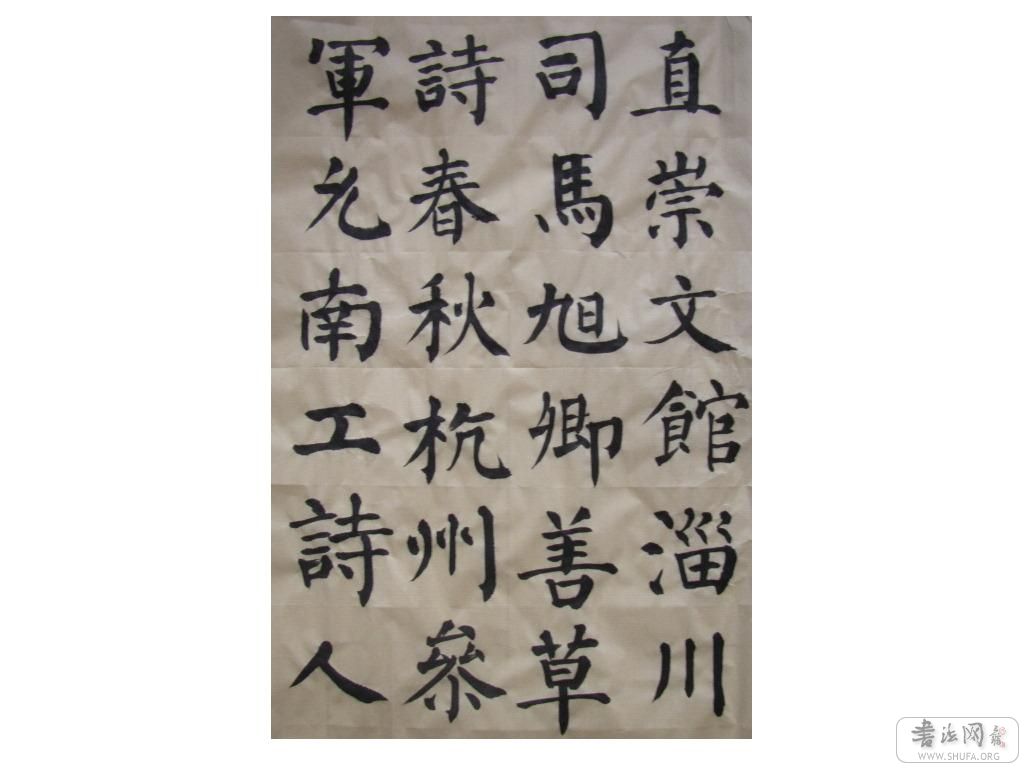 直崇文館淄川
司馬旭卿善草
詩春秋杭州叅
軍允南工詩人
書法网
WWW.SHUFA.ORG